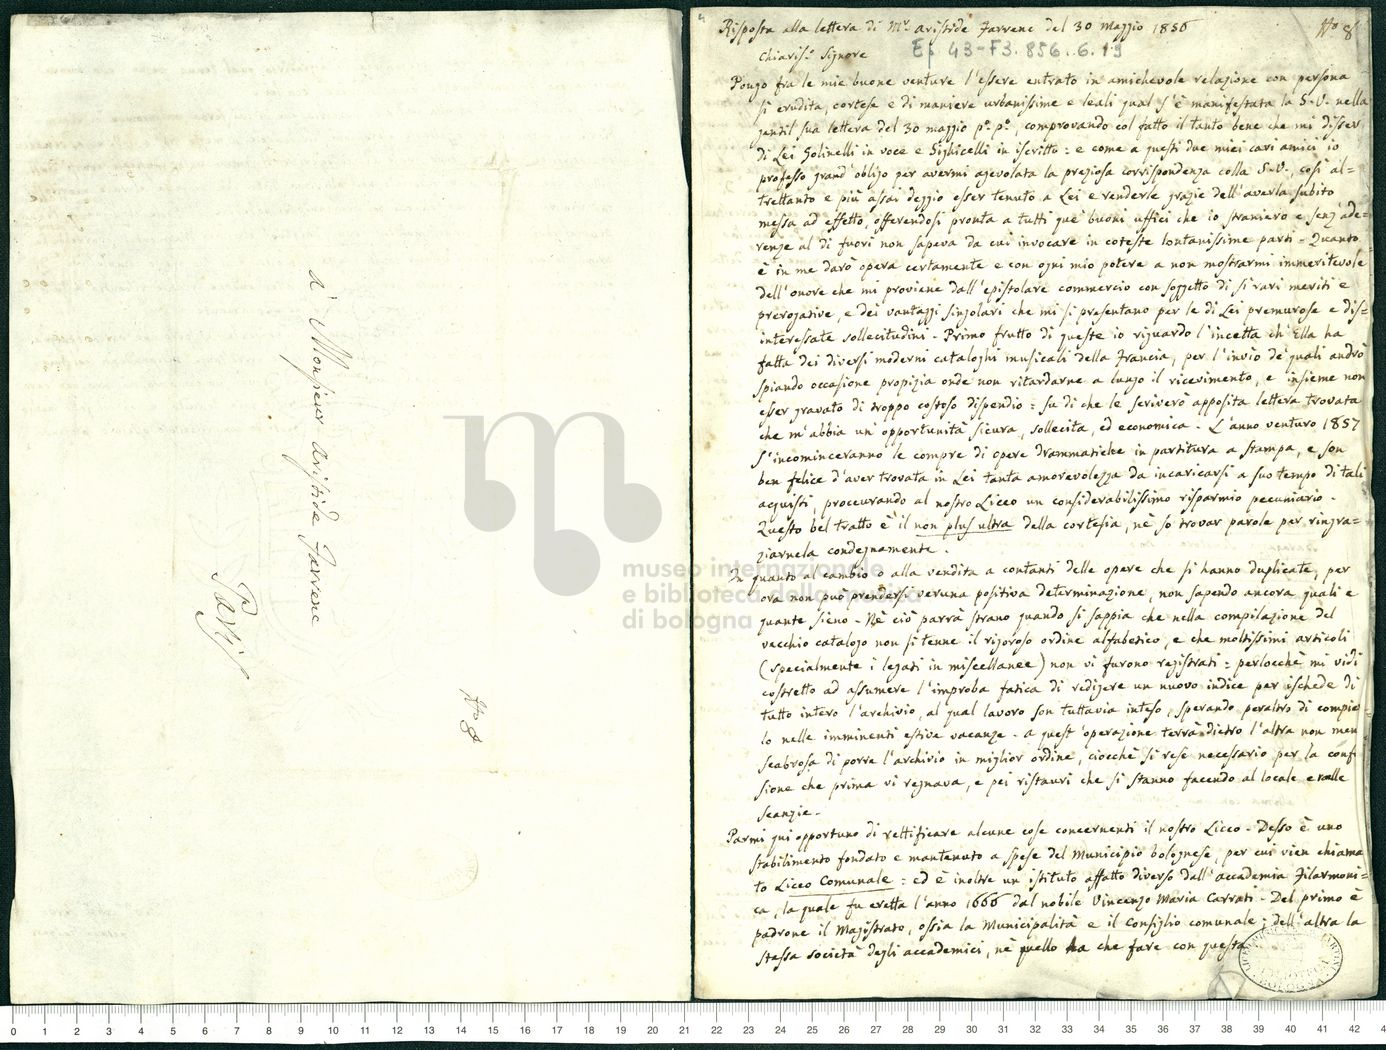 A Monsieur Aristide Farrenc
Parigi
No 8
Risposta alla lettera di Mr. Aristide Farrenc del 30 Maggio 1856
No 8
Chiaris.o Signore
Ep. 43-F3.856.6.19
Pongo fra le mie buone venture l'essere entrato in amichevole relazione con persona
sì erudita, cortese e di maniere urbanissime e leali qual s'è manifestata la S.V. nella
gentil sua lettera del 30 maggio p.o p.o, comprovando col fatto il tanto bene che mi disser
di Lei Golinelli in voce e Sighicelli in iscritto: e come a questi due miei cari amici io
professo grand'obligo per avermi agevolata la preziosa corrispondenza colla S.V., così al=
trettanto e più assai deggio esser tenuto a Lei e renderle grazie dell'averla subito
messa ad effetto, offerendosi pronta a tutti que' buoni uffici che io straniero e senz'ade=
renze al di fuori non sapeva da cui invocare in coteste lontanissime parti. Quanto
è in me darò opera certamente e con ogni mio potere a non mostrarmi immeritevole
dell'onore che mi proviene dall'epistolare commercio con soggetto di sì rari meriti e
prerogative, e dei vantaggi singolari che mi si presentano per le di Lei premurose e dis=
interessate sollecitudini. Primo frutto di queste io riguardo l'incetta ch'Ella ha
fatta dei diversi moderni cataloghi musicali della Francia, per l'invio de' quali andrò
spiando occasione propizia onde non ritardarne a lungo il ricevimento, e insieme non
esser gravato di troppo costoso dispendio: su di che le scriverò apposita lettera trovata
che m'abbia un'opportunità sicura, sollecita, ed economica. L'anno venturo 1857
s'incominceranno le compre di opere drammatiche in partitura a stampa, e son
ben felice d'aver trovata in Lei tanta amorevolezza da incaricarsi a suo tempo di tali
acquisti, proccurando al nostro Liceo un considerabilissimo risparmio pecuniario.
Questo bel tratto è il non plus ultra della cortesia, nè so trovar parole per ringra=
ziarnela condegnamente.
In quanto al cambio o alla vendita a contanti delle opere che si hanno duplicate, per
ora non può prendersi veruna positiva determinazione, non sapendo ancora quali e
quante sieno. Nè ciò parrà strano quando si sappia che nella compilazione del
vecchio catalogo non si tenne il rigoroso ordine alfabetico, e che moltissimi articoli
(specialmente i legati in miscellanee) non vi furono registrati: perlocchè mi vidi
costretto ad assumere l'improba fatica di redigere un nuovo indice per ischede di
tutto intero l'archivio, al qual lavoro son tuttavia inteso, sperando peraltro di compier
lo nelle imminenti estive vacanze. A quest'operazione terrà dietro l'altra non men
scabrosa di porre l'archivio in miglior ordine, ciocchè si rese necessario per la conf
sione che prima vi regnava, e pei ristauri che si stanno facendo al locale e nelle
scanzie.
Parmi qui opportuno di rettificare alcune cose concernenti il nostro Liceo. Desso è uno
stabilimento fondato e mantenuto a spese del Municipio bolognese, per cui vien chiama
to Liceo Comunale: ed è inoltre un istituto affatto diverso dall'Accademia Filarmoni=
ca, la quale fu eretta l'anno 1666 dal nobile Vincenzo Maria Carrati. Del primo è
padrone il Magistrato, ossia la Municipalità e il Consiglio comunale; dell'altra la
stessa società degli accademici, nè quello ha che fare con questa
museo internazionale
e biblioteca della musica
di bologna